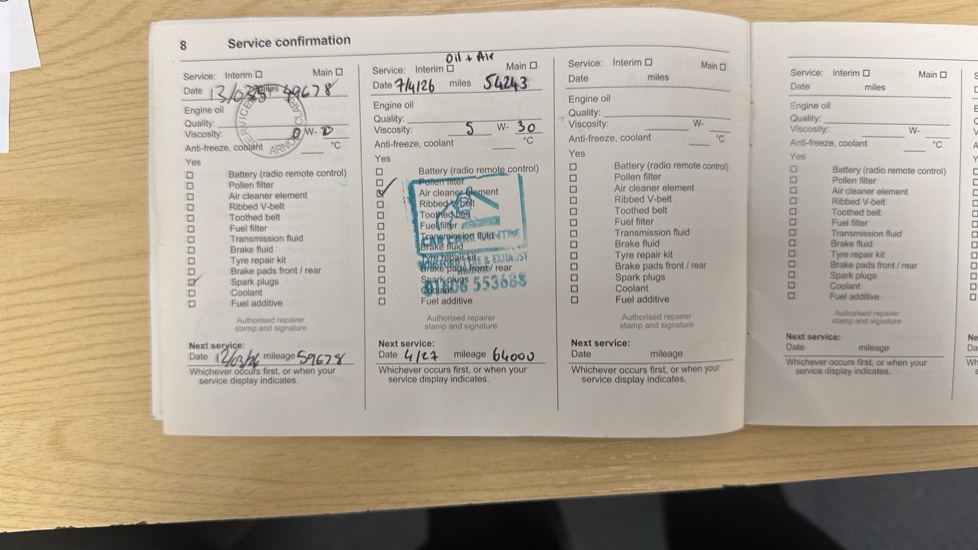 8 Service confirmation
Service: Interim Main
Date 13/03/25 miles 49678
Engine oil
Quality:
Viscosity: 0 W-
Anti-freeze, coolant °C
Yes
Battery (radio remote control)
Pollen filter
Air cleaner element
Ribbed V-belt
Toothed belt
Fuel filter
Transmission fluid
Brake fluid
Tyre repair kit
Brake pads front / rear
Spark plugs
Coolant
Fuel additive
Authorised repairer
stamp and signature
Next service:
Date 12/03/26 mileage 59678
Whichever occurs first, or when your
service display indicates.
Oil + Air
Service: Interim Main
Date 7/4/26 miles 54243
Engine oil
Quality:
Viscosity: 5 W- 30
Anti-freeze, coolant °C
Yes
Battery (radio remote control)
Pollen filter
Air cleaner element
Ribbed V-belt
Toothed belt
Fuel filter
Transmission fluid
Brake fluid
Tyre repair kit
& EXHAUST
Brake pads front / rear
Spark plugs
553688
Coolant
Fuel additive
Authorised repairer
stamp and signature
Next service:
Date 4/27 mileage 64000
Whichever occurs first, or when your
service display indicates.
Service: Interim Main
Date miles
Engine oil
Quality:
Viscosity: W-
Anti-freeze, coolant °C
Yes
Battery (radio remote control)
Pollen filter
Air cleaner element
Ribbed V-belt
Toothed belt
Fuel filter
Transmission fluid
Brake fluid
Tyre repair kit
Brake pads front / rear
Spark plugs
Coolant
Fuel additive
Authorised repairer
stamp and signature
Next service:
Date mileage
Whichever occurs first, or when your
service display indicates.
Service: Interim Main
Date miles
Engine oil
Quality:
Viscosity: W-
Anti-freeze, coolant °C
Yes
Battery (radio remote control)
Pollen filter
Air cleaner element
Ribbed V-belt
Toothed belt
Fuel filter
Transmission fluid
Brake fluid
Tyre repair kit
Brake pads front / rear
Spark plugs
Coolant
Fuel additive
Authorised repairer
stamp and signature
Next service:
Date mileage
Whichever occurs first, or when your
service display indicates.